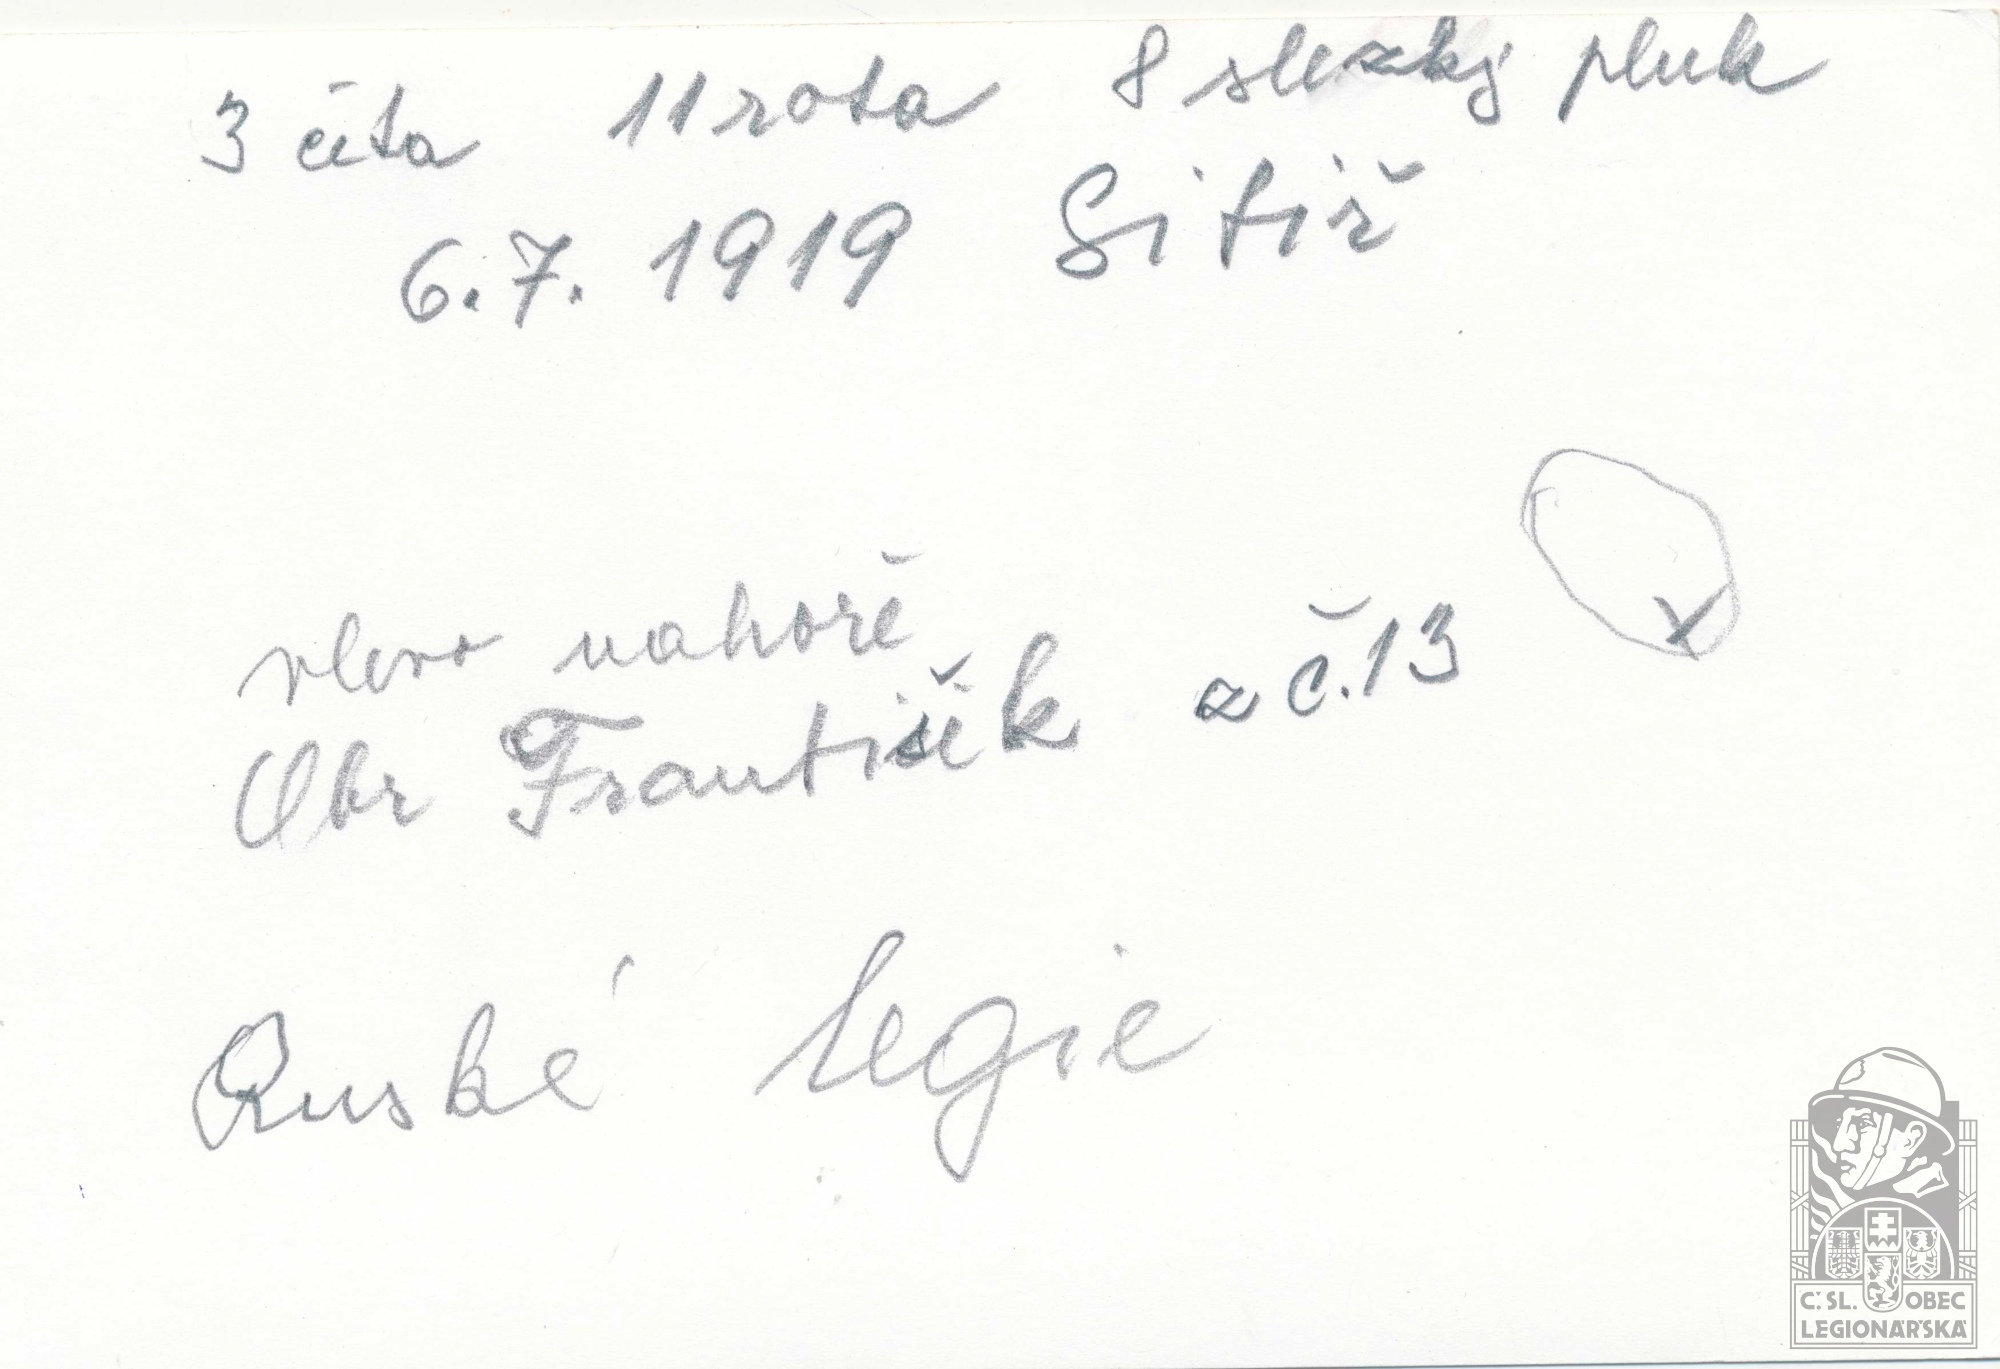 3 četa 11 rota 8 slezký pluk
6.7. 1919 Sitiř
vlevo nahoře
Obr František z č.13
Ruské legie
Č. SL. OBEC
LEGIONÁŘSKÁ